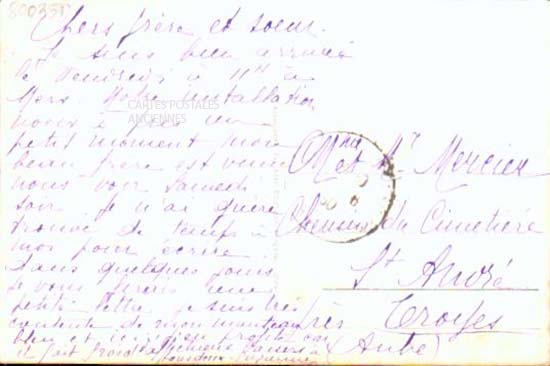 800351
Chers frère et soeur.
Je suis bien arrivée
le Vendredi à 11H à
Mers. Notre installation
nous a pris un
petit moment mon
beau frère est venu
nous voir Samedi
soir je n'ai guère
trouvé de temps à
moi pour écrire.
dans quelques jours
je vous ferais une
petite lettre je suis très
contente de mon manteau
il fait froid
CARTES POSTALES
ANCIENNES
Mme et Mr Mercier
Chemin du Cimetière
St André
près Troyes
(Aube)